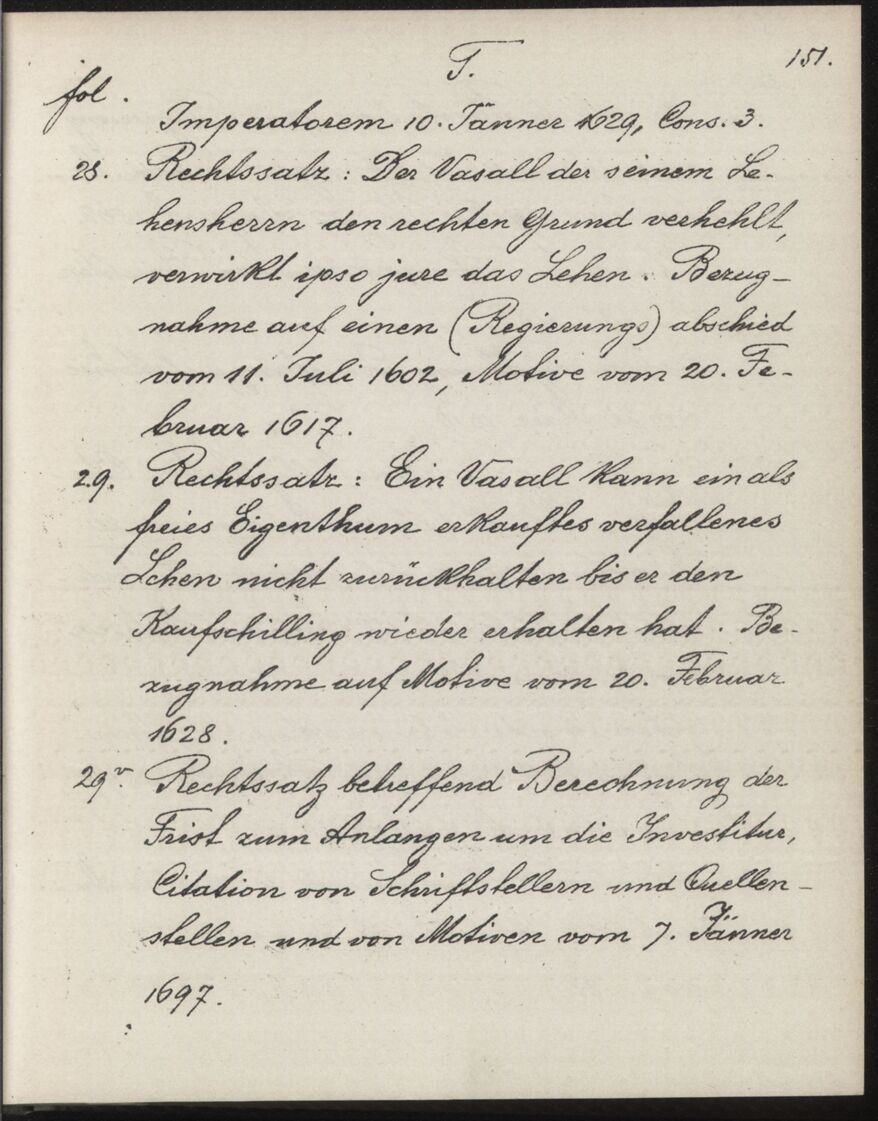 T.
151.
fol.
Imperatorem 10. Jänner 1629, Cons. 3.
28. Rechtssatz: Der Vasall der seinem Le-
hensherrn den rechten Grund verhehlt,
verwirkt ipso jure das Lehen. Bezug-
nahme auf einen (Regierungs) abschied
vom 11. Juli 1602, Motive vom 20. Fe-
bruar 1617.
29. Rechtssatz: Ein Vasall kann ein als
freies Eigenthum erkauftes verfallenes
Lehen nicht zurückhalten bis er den
Kaufschilling wieder erhalten hat. Be-
zugnahme auf Motive vom 20. Februar
1628.
29v. Rechtssatz betreffend Berechnung der
Frist zum Anlangen um die Investitur,
Citation von Schriftstellern und Quellen-
stellen und von Motiven vom 7. Jänner
1697.